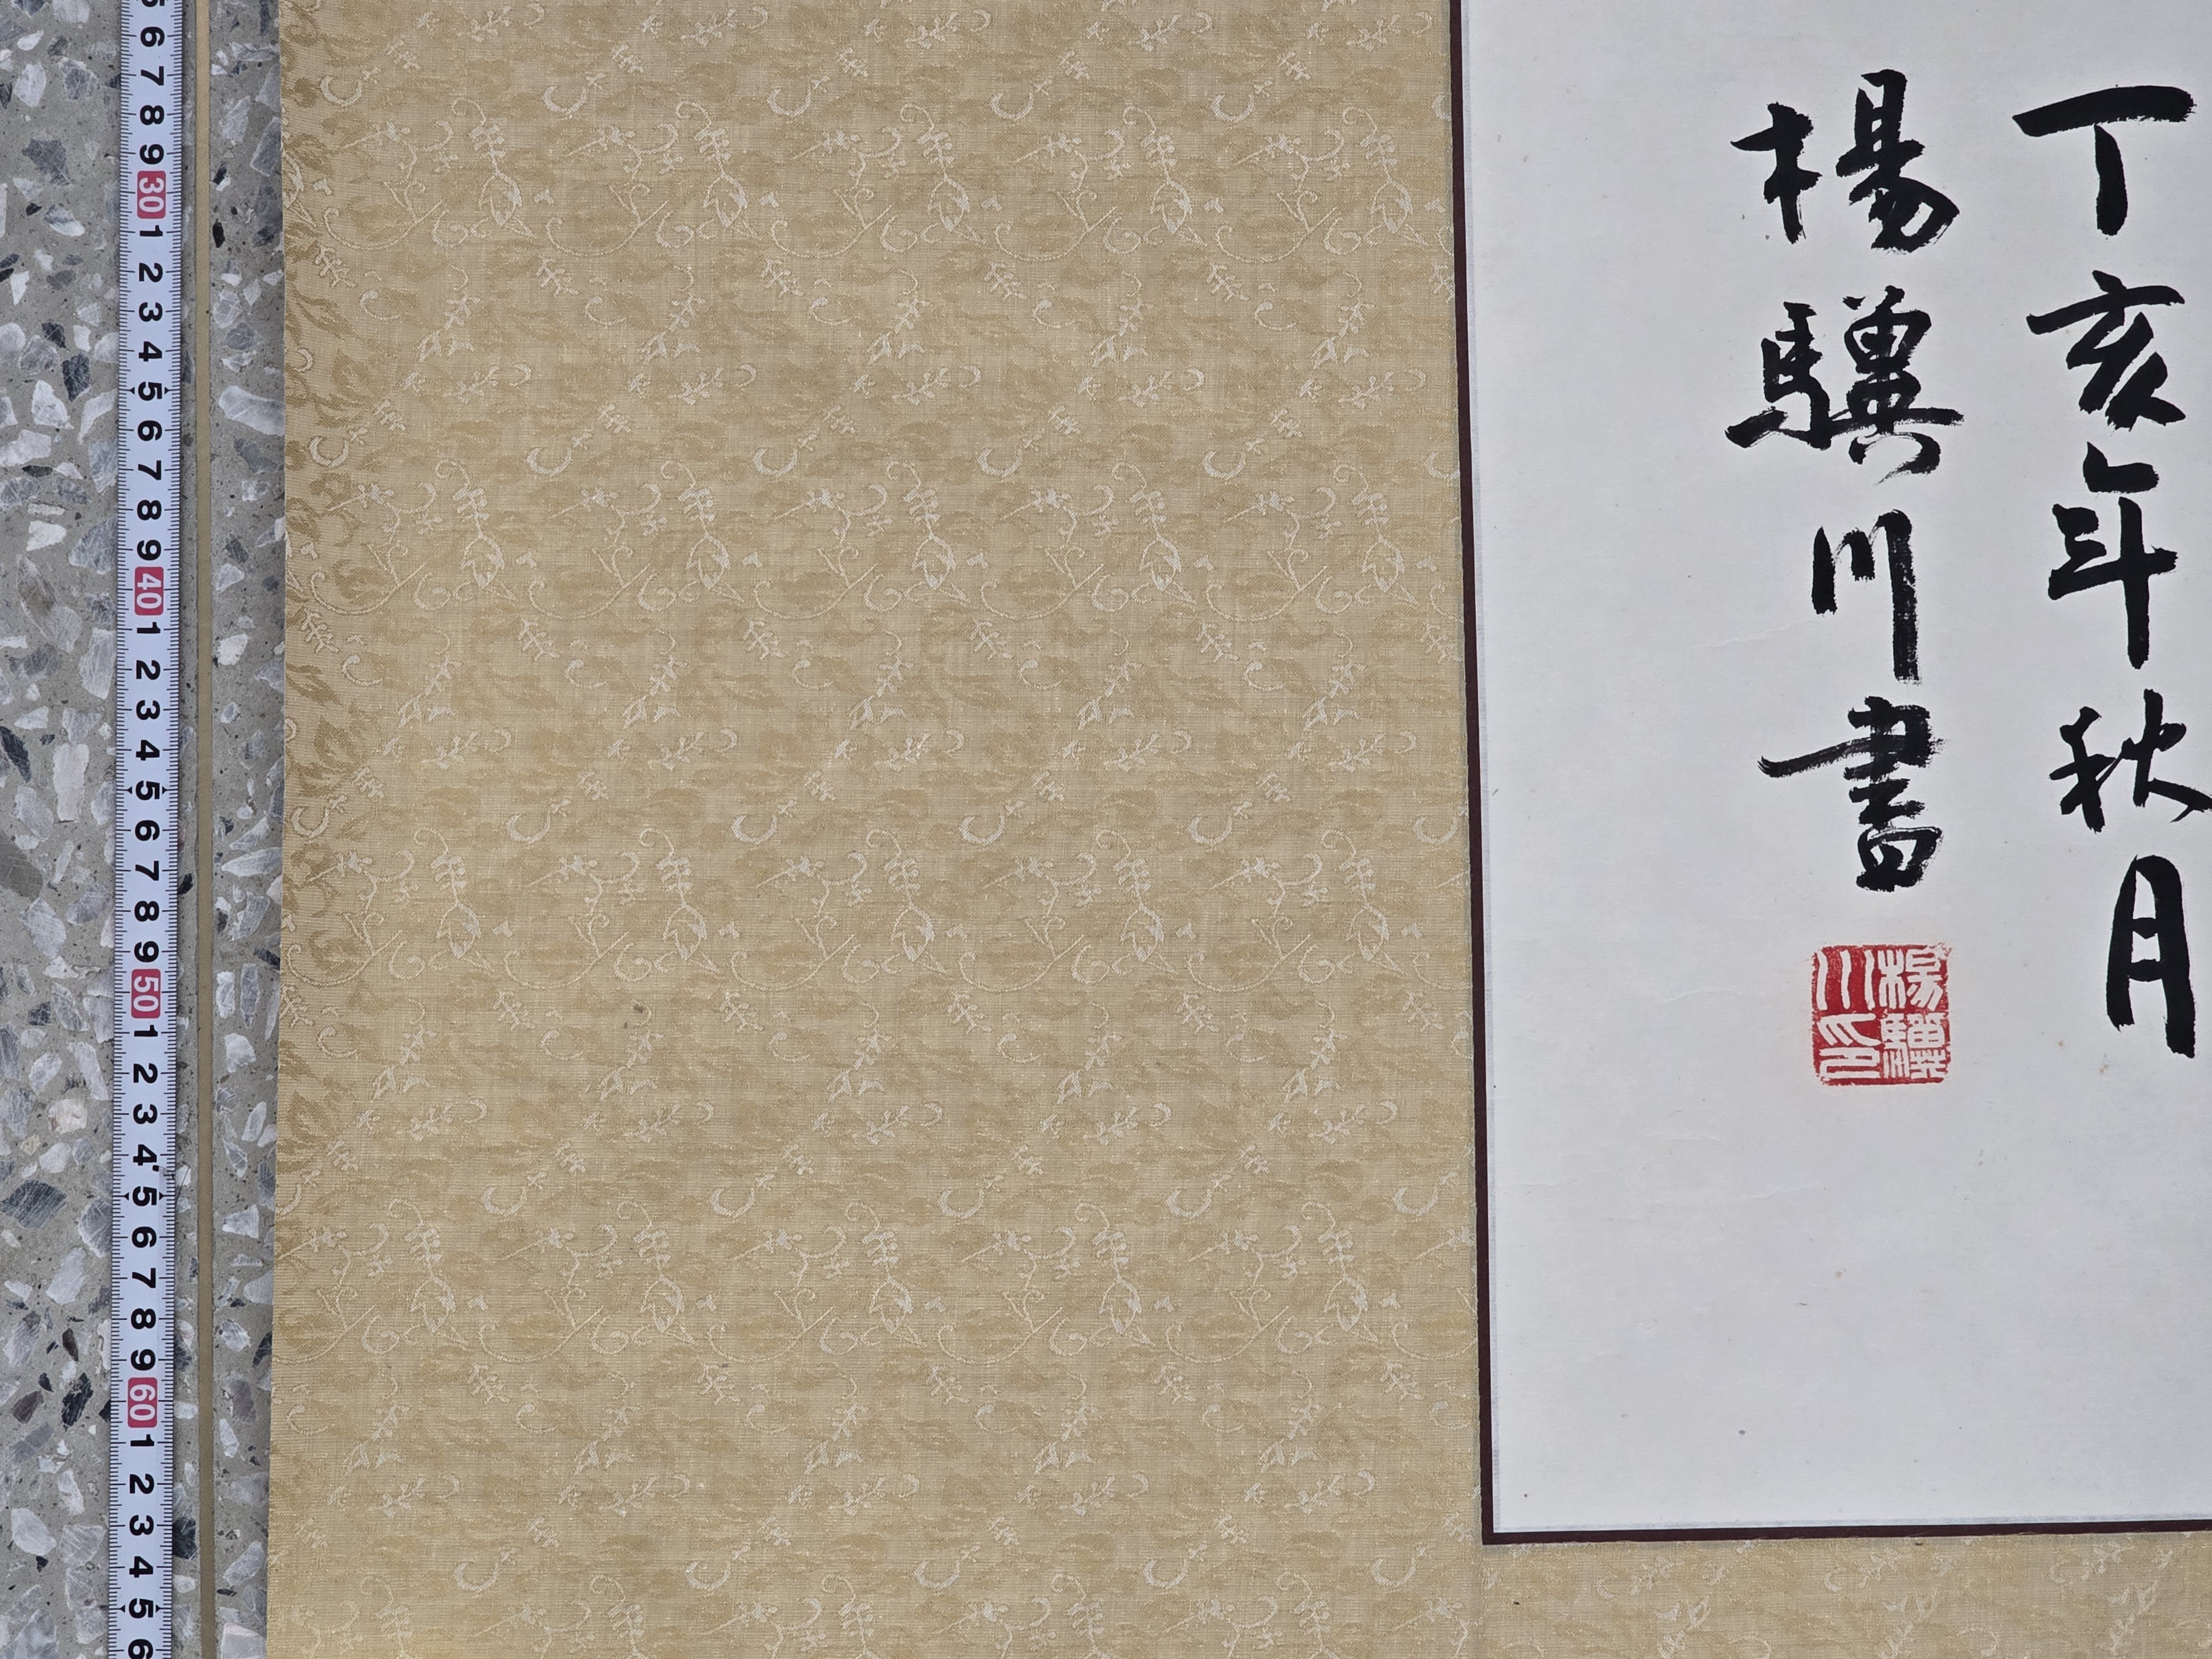 丁亥年秋月
楊驥川書
楊驥川印
6 7 8 9 30 1 2 3 4 5 6 7 8 9 40 1 2 3 4 5 6 7 8 9 50 1 2 3 4 5 6 7 8 9 60 1 2 3 4 5 6